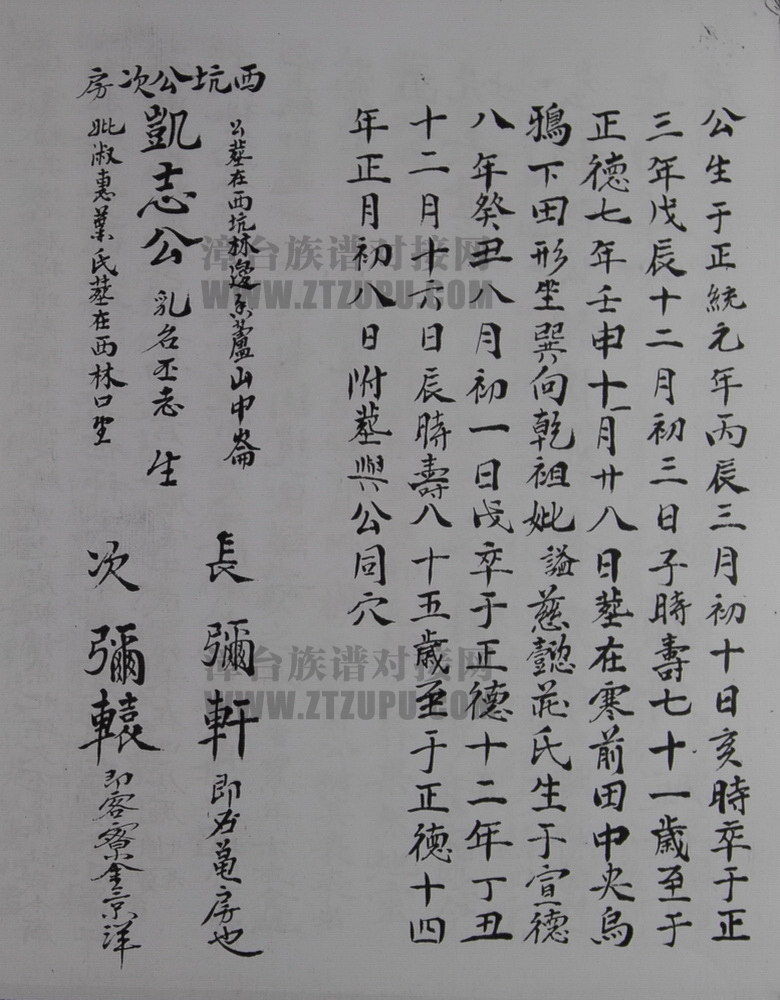 公生于正統元年丙辰三月初十日亥時卒于正
三年戊辰十二月初三日子時壽七十一歲至于
正德七年壬申十一月廿八日墓在寒前田中央烏
鴉下田形坐巽向乾祖妣謚慈懿莊氏生于宣德
八年癸丑八月初一日戌卒于正德十二年丁丑
十二月十六日辰時壽八十五歲至于正德十四
年正月初八日附墓與公同穴
西坑公次房
公墓在西坑林邊 蘆山中崙
凱志公 乳名丕志 生
妣淑惠葉氏墓在西林口坐
長 彌軒 即 黽房也
次 彌轅 即客寮金京洋
漳台族谱对接网
WWW.ZTZUPU.COM
漳台族谱对接网
WWW.ZTZUPU.COM